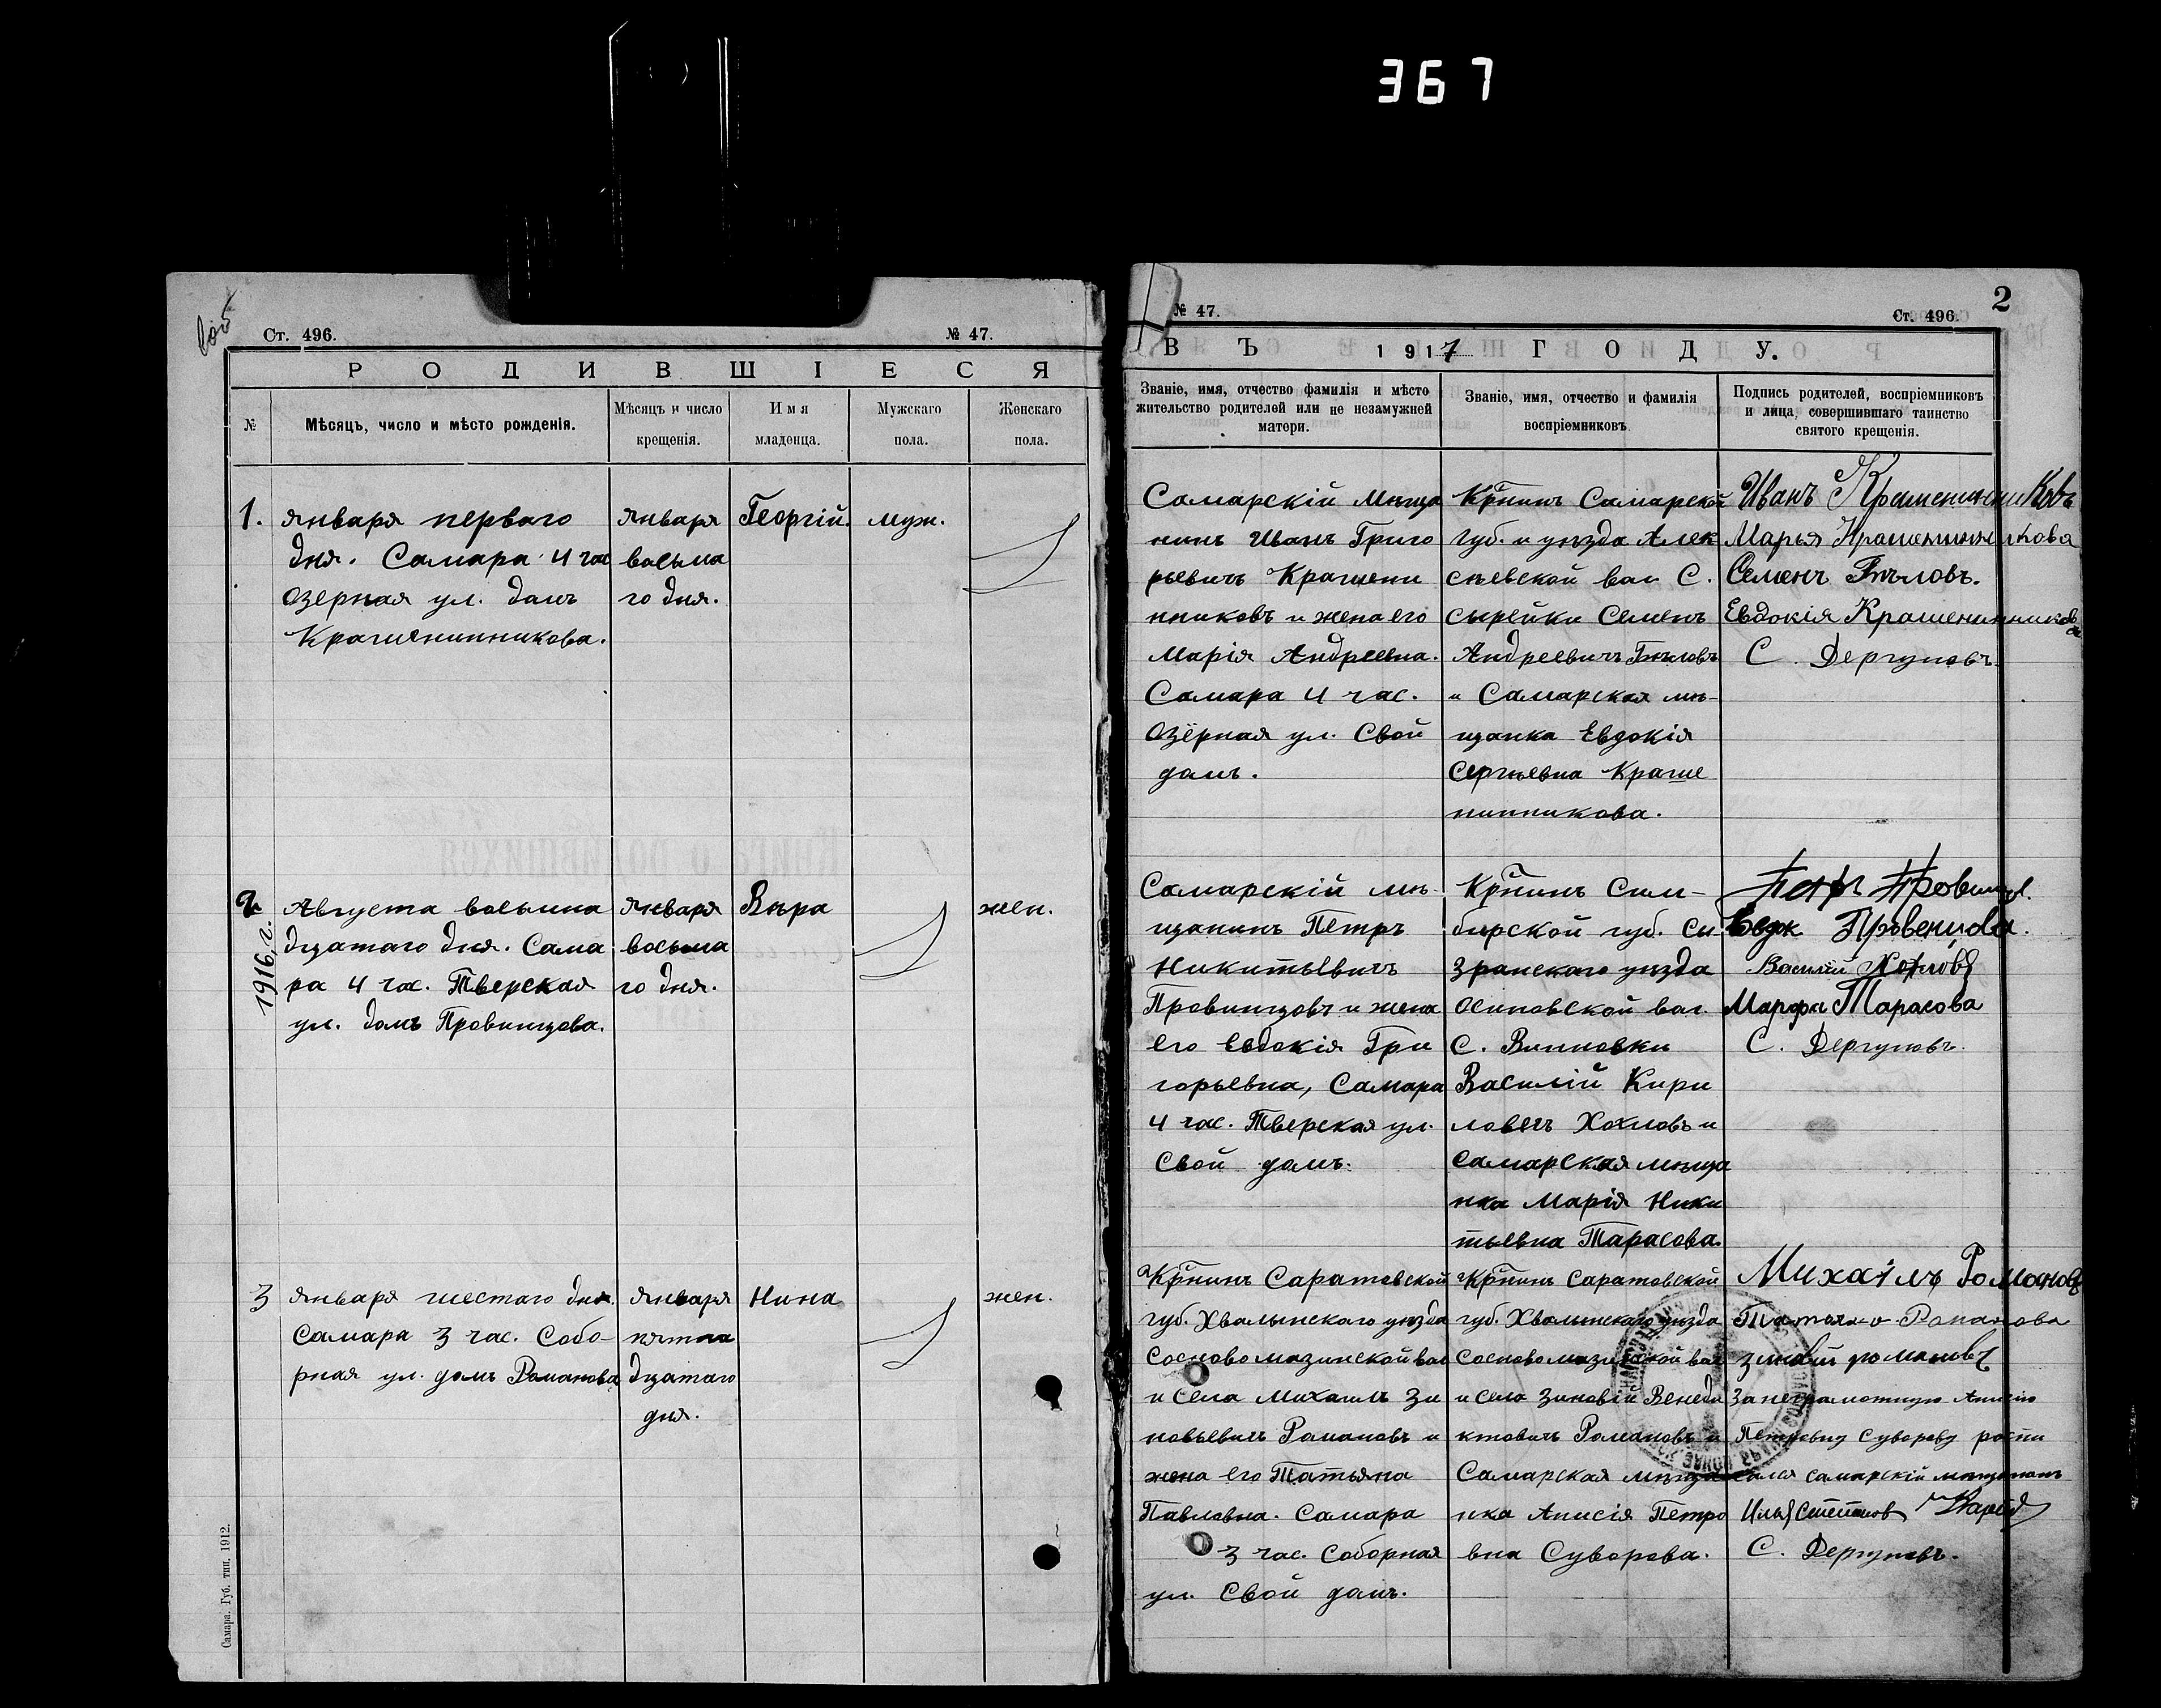 367
Ст. 496.
№ 47.
РОДИВШІЕСЯ
№
Мѣсяцъ, число и мѣсто рожденія.
Мѣсяцъ и число
крещенія.
Имя
младенца.
Мужскаго
пола.
Женскаго
пола.
1.
января перваго
дня. Самара 4 час
Озерная ул. домъ
Крашенинникова.
января
восьма
го дня.
Георгій.
муж.
2
1916 г.
Августа восьмна
дцатаго дня. Сама
ра 4 час. Тверская
ул. домъ Провинцова.
января
восьма
го дня.
Вѣра
жен.
3
января шестаго дня.
Самара 3 час. Собо-
рная ул. домъ Романова
января
пятна
дцатаго
дня.
Нина
жен.
Самара. Губ. тип. 1912.
№ 47.
Ст. 496.
2
ВЪ 1917 ГОДУ.
Званіе, имя, отчество фамилія и мѣсто
жительство родителей или не незамужней
матери.
Званіе, имя, отчество и фамилія
воспріемниковъ
Подпись родителей, воспріемниковъ
и лица совершившаго таинство
святого крещенія.
Самарскій мѣща
нинъ Иванъ Григо
рьевичъ Крашени
нниковъ и жена его
Марія Андреевна.
Самара 4 час.
Озёрная ул. Свой
домъ.
Крнинъ Самарской
губ. и уѣзда Алек
сѣевской вол С.
Сырейки Семенъ
Андреевичъ Бѣловъ
и Самарская мѣ-
щанка Евдокія
Сергѣевна Краше
нинникова.
Иванъ Крашенинниковъ
Марья Крашенинникова
Семенъ Бѣловъ.
Евдокія Крашенинникова
С. Дергуновъ.
Самарскій мѣ-
щанинъ Петръ
Никитьевичъ
Провинцовъ и жена
его Евдокія Гри
горьевна, Самара
4 час. Тверская ул.
Свой домъ.
Крнинъ Сим-
бирской губ. Сы
зранскаго уѣзда
Осиповской вол.
С. Винновки
Василій Кири
ловичъ Хохловъ и
Самарская мѣща
нка Марія Ники
тьевна Тарасова.
Евдок Провенцова.
Василій Хохловъ
Марфа Тарасова
С. Дергуновъ.
Крнинъ Саратовской
губ. Хвалынскаго уѣзда
Сосновомазинской вол
и села Михаилъ Зи
новьевичъ Романовъ и
жена его Татьяна
Павловна. Самара
3 час. Соборная
ул. Свой домъ.
Крнинъ Саратовской
губ. Хвалынскаго уѣзда
Сосновомазинской вол
и села Зиновій Венеди
ктовичъ Романовъ и
Самарская мѣща
нка Анисія Петро
вна Суворова.
Михаілъ Романовъ
Татьяна Романова
Зиновій романовъ
За неграмотную Анисію
Петровну Суворову распи
сался самарскій мѣщанинъ
Илья Степанов
С. Дергуновъ.